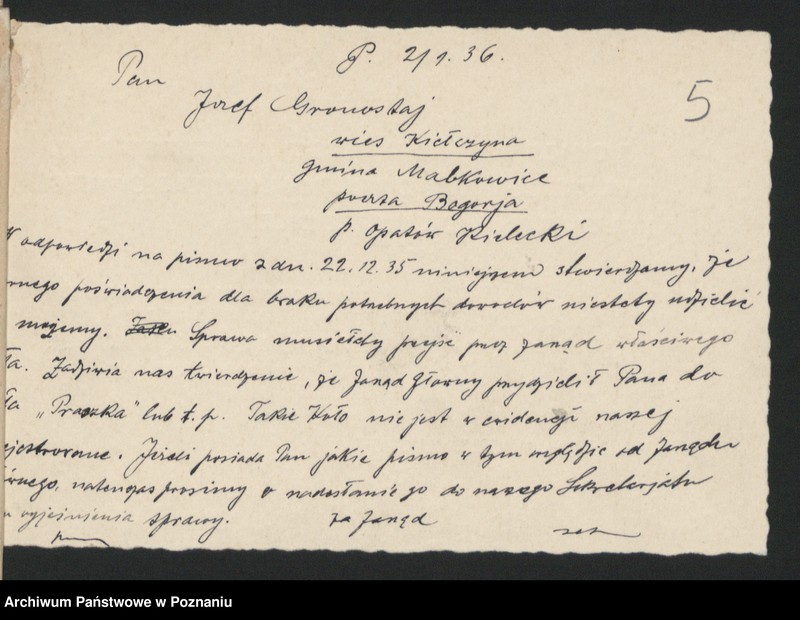 P. 2/1. 36.
Pan
5
Józef Gronostaj
wieś Kiełczyna
gmina Malkowice
poczta Bogorja
p. Opatów Kielecki
W odpowiedzi na pismo z dn. 22.12.35 niniejszem stwierdzamy, że
rnego poświadczenia dla braku potrzebnych dowodów niestety udzielić
możemy. Sprawa musiałaby przejść przez zarząd właściwego
ła. Zadziwia nas twierdzenie, że Zarząd Główny przydzielił Pana do
ła „Praszka" lub t. p. Takie Koło nie jest w ewidencji naszej
ejestrowane. Jeżeli posiada Pan jakie pismo w tym względzie od Zarządu
ównego, natenczas prosimy o nadesłanie go do naszego Sekretarjatu
wyjaśnienia sprawy. za Zarząd
Archiwum Państwowe w Poznaniu